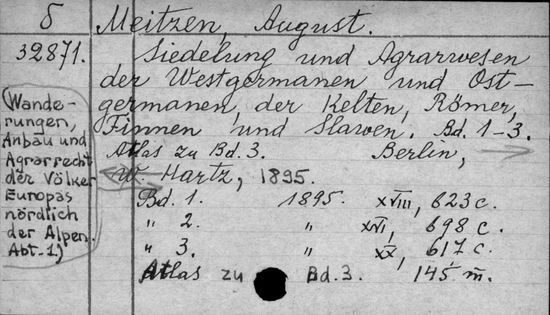 б
Meitzen, August.
32871.
Siedelung und Agrarwesen
der Westgermanen und Ost-
germanen, der Kelten, Römer,
Finnen und Slawen. Bd. 1-3.
Atlas zu Bd. 3. Berlin,
W. Hartz, 1895.
Bd. 1. 1895. XVIII, 623 c.
" 2. " XVI, 698 c.
" 3. " XX, 617 c.
Atlas zu Bd. 3. 145 m.
(Wande-
rungen,
Anbau und
Agrarrecht
der Völker
Europas
nördlich
der Alpen.
Abt-1.)